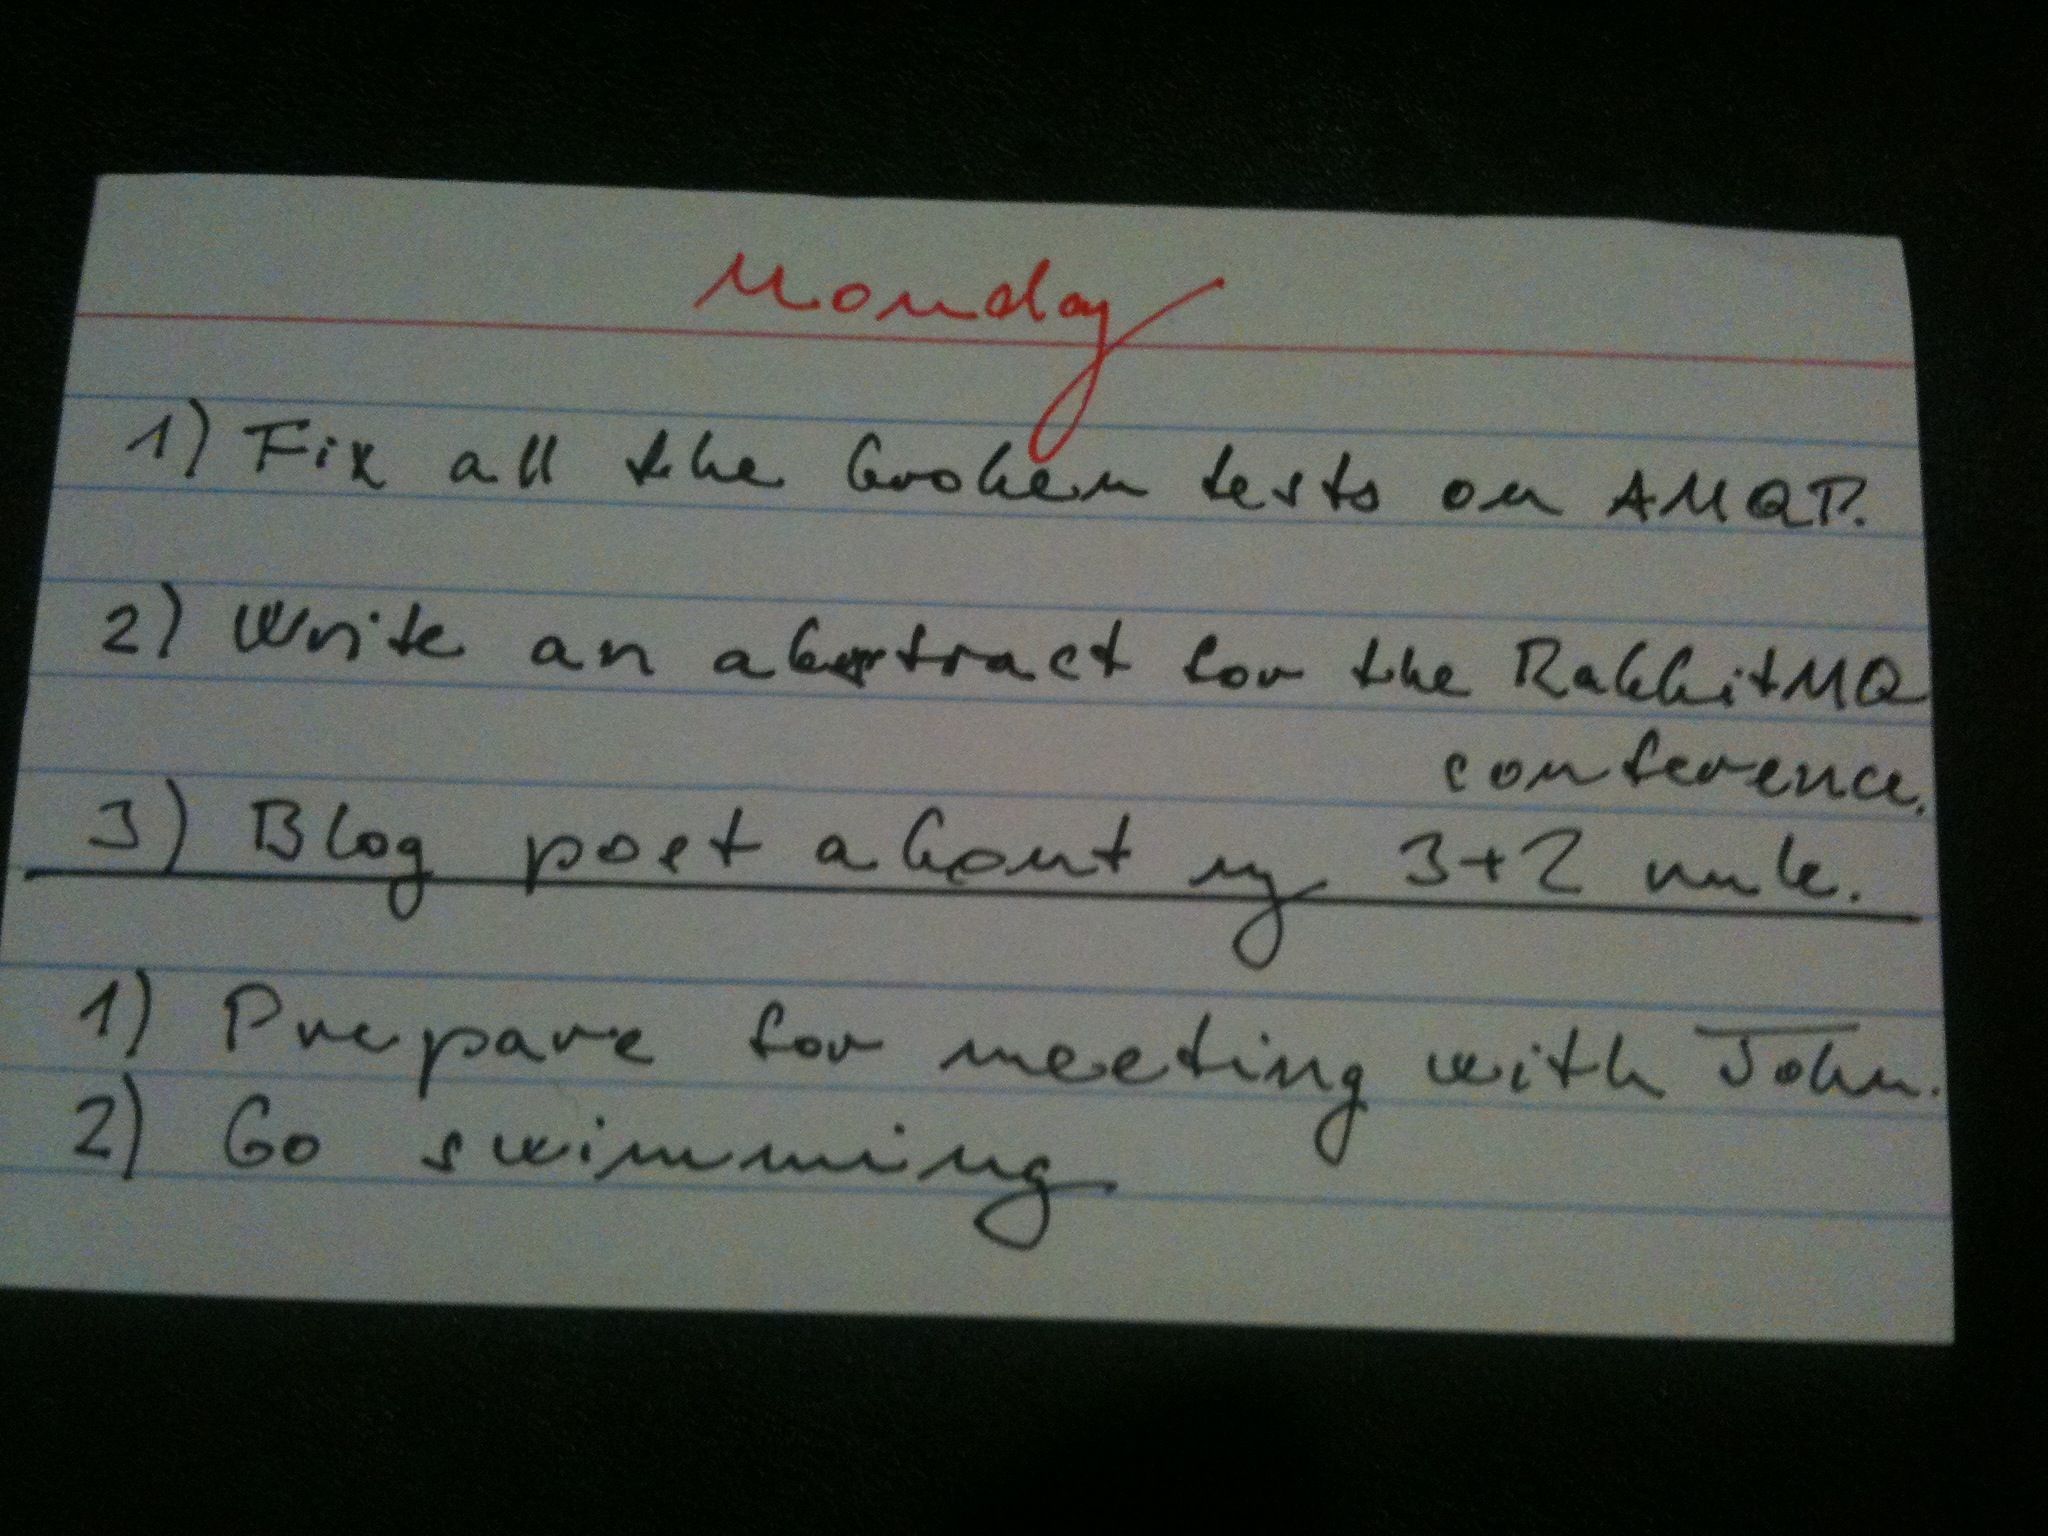 Monday
1) Fix all the broken tests on AMQP.
2) Write an abstract for the RabbitMQ
conference.
3) Blog post about my 3+2 rule.
1) Prepare for meeting with John.
2) Go swimming